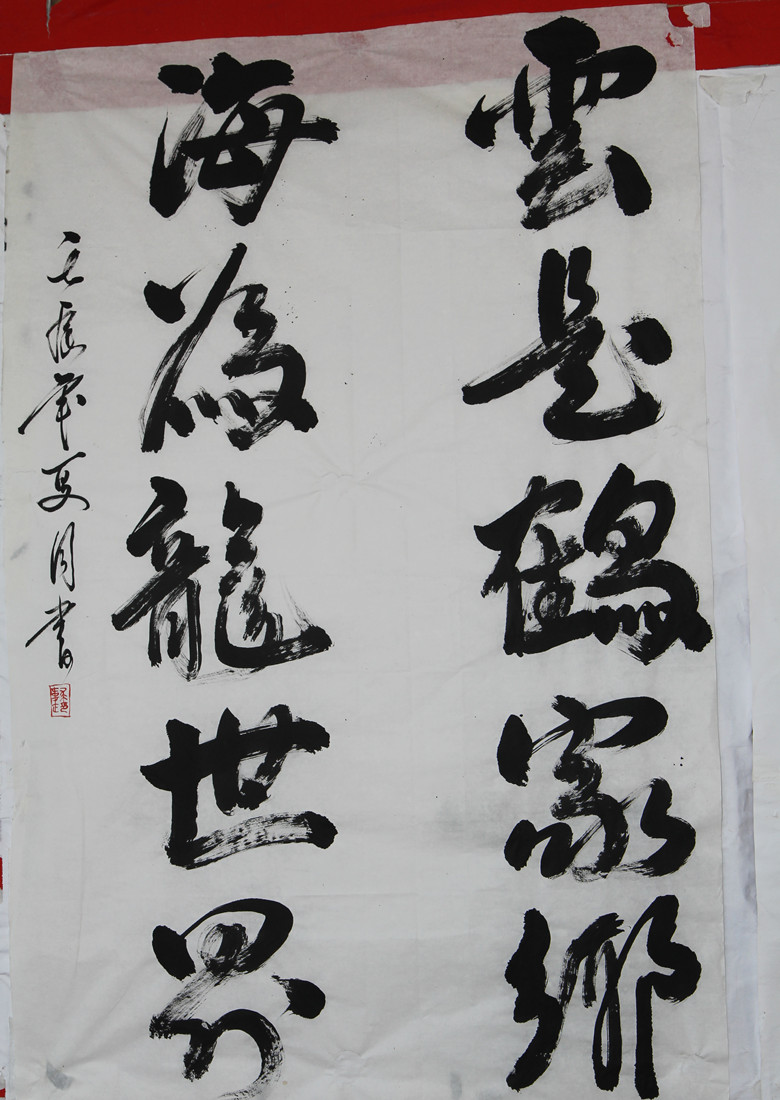 雲是鶴家鄉
海為龍世界
壬辰年夏月書